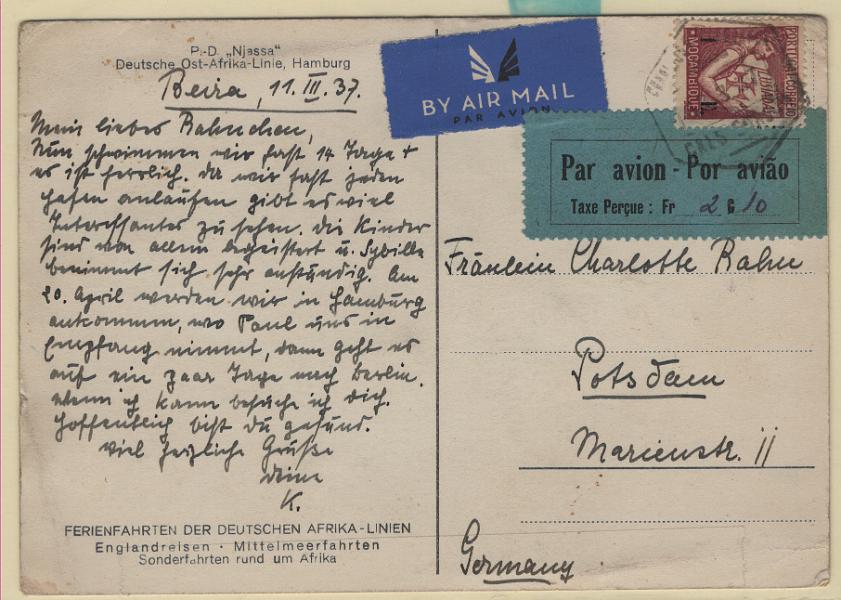 P.-D. „Njassa“
Deutsche Ost-Afrika-Linie, Hamburg
Beira, 11. III. 37.
Mein liebes Rahnchen,
Nun schwimmen wir fast 14 Tage +
es ist herrlich. Da wir fast jeden
Hafen anlaufen gibt es viel
Interessantes zu sehen. Die Kinder
sind von allem begeistert u. Sybille
benimmt sich sehr anständig. Am
20. April werden wir in Hamburg
ankommen, wo Paul uns in
Empfang nimmt, dann geht es
auf ein paar Tage nach Berlin.
Wenn ich kann besuche ich Dich.
Hoffentlich bist Du gesund.
Viel herzliche Grüße
Deine
K.
FERIENFAHRTEN DER DEUTSCHEN AFRIKA-LINIEN
Englandreisen · Mittelmeerfahrten
Sonderfahrten rund um Afrika
BY AIR MAIL
PAR AVION
PORTUGAL CORREIO
MOÇAMBIQUE
LUSIADAS
Par avion - Por avião
Taxe Perçue : Fr 2 C 10
Fräulein Charlotte Rahn
Potsdam
Marienstr. 11
Germany